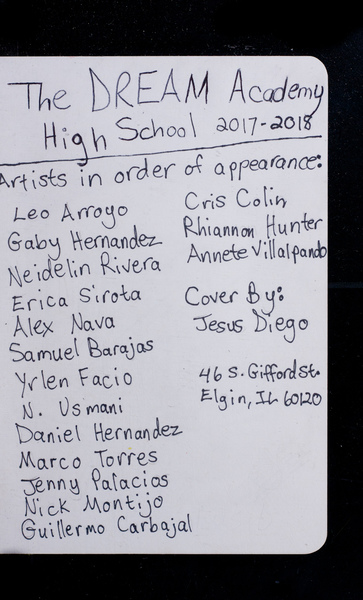 The DREAM Academy
High School 2017-2018
Artists in order of appearance:
Leo Arroyo
Gaby Hernandez
Neidelin Rivera
Erica Sirota
Alex Nava
Samuel Barajas
Yrlen Facio
N. Usmani
Daniel Hernandez
Marco Torres
Jenny Palacios
Nick Montijo
Guillermo Carbajal
Cris Colin
Rhiannon Hunter
Annete Villalpando
Cover By:
Jesus Diego
46 S. Gifford St.
Elgin, IL 60120